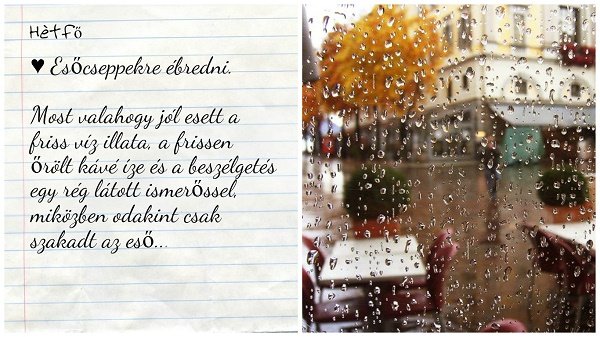 Hétfő
♥ Esőcseppekre ébredni.
Most valahogy jól esett a
friss víz illata, a frissen
őrölt kávé íze és a beszélgetés
egy rég látott ismerőssel,
miközben odakint csak
szakadt az eső...